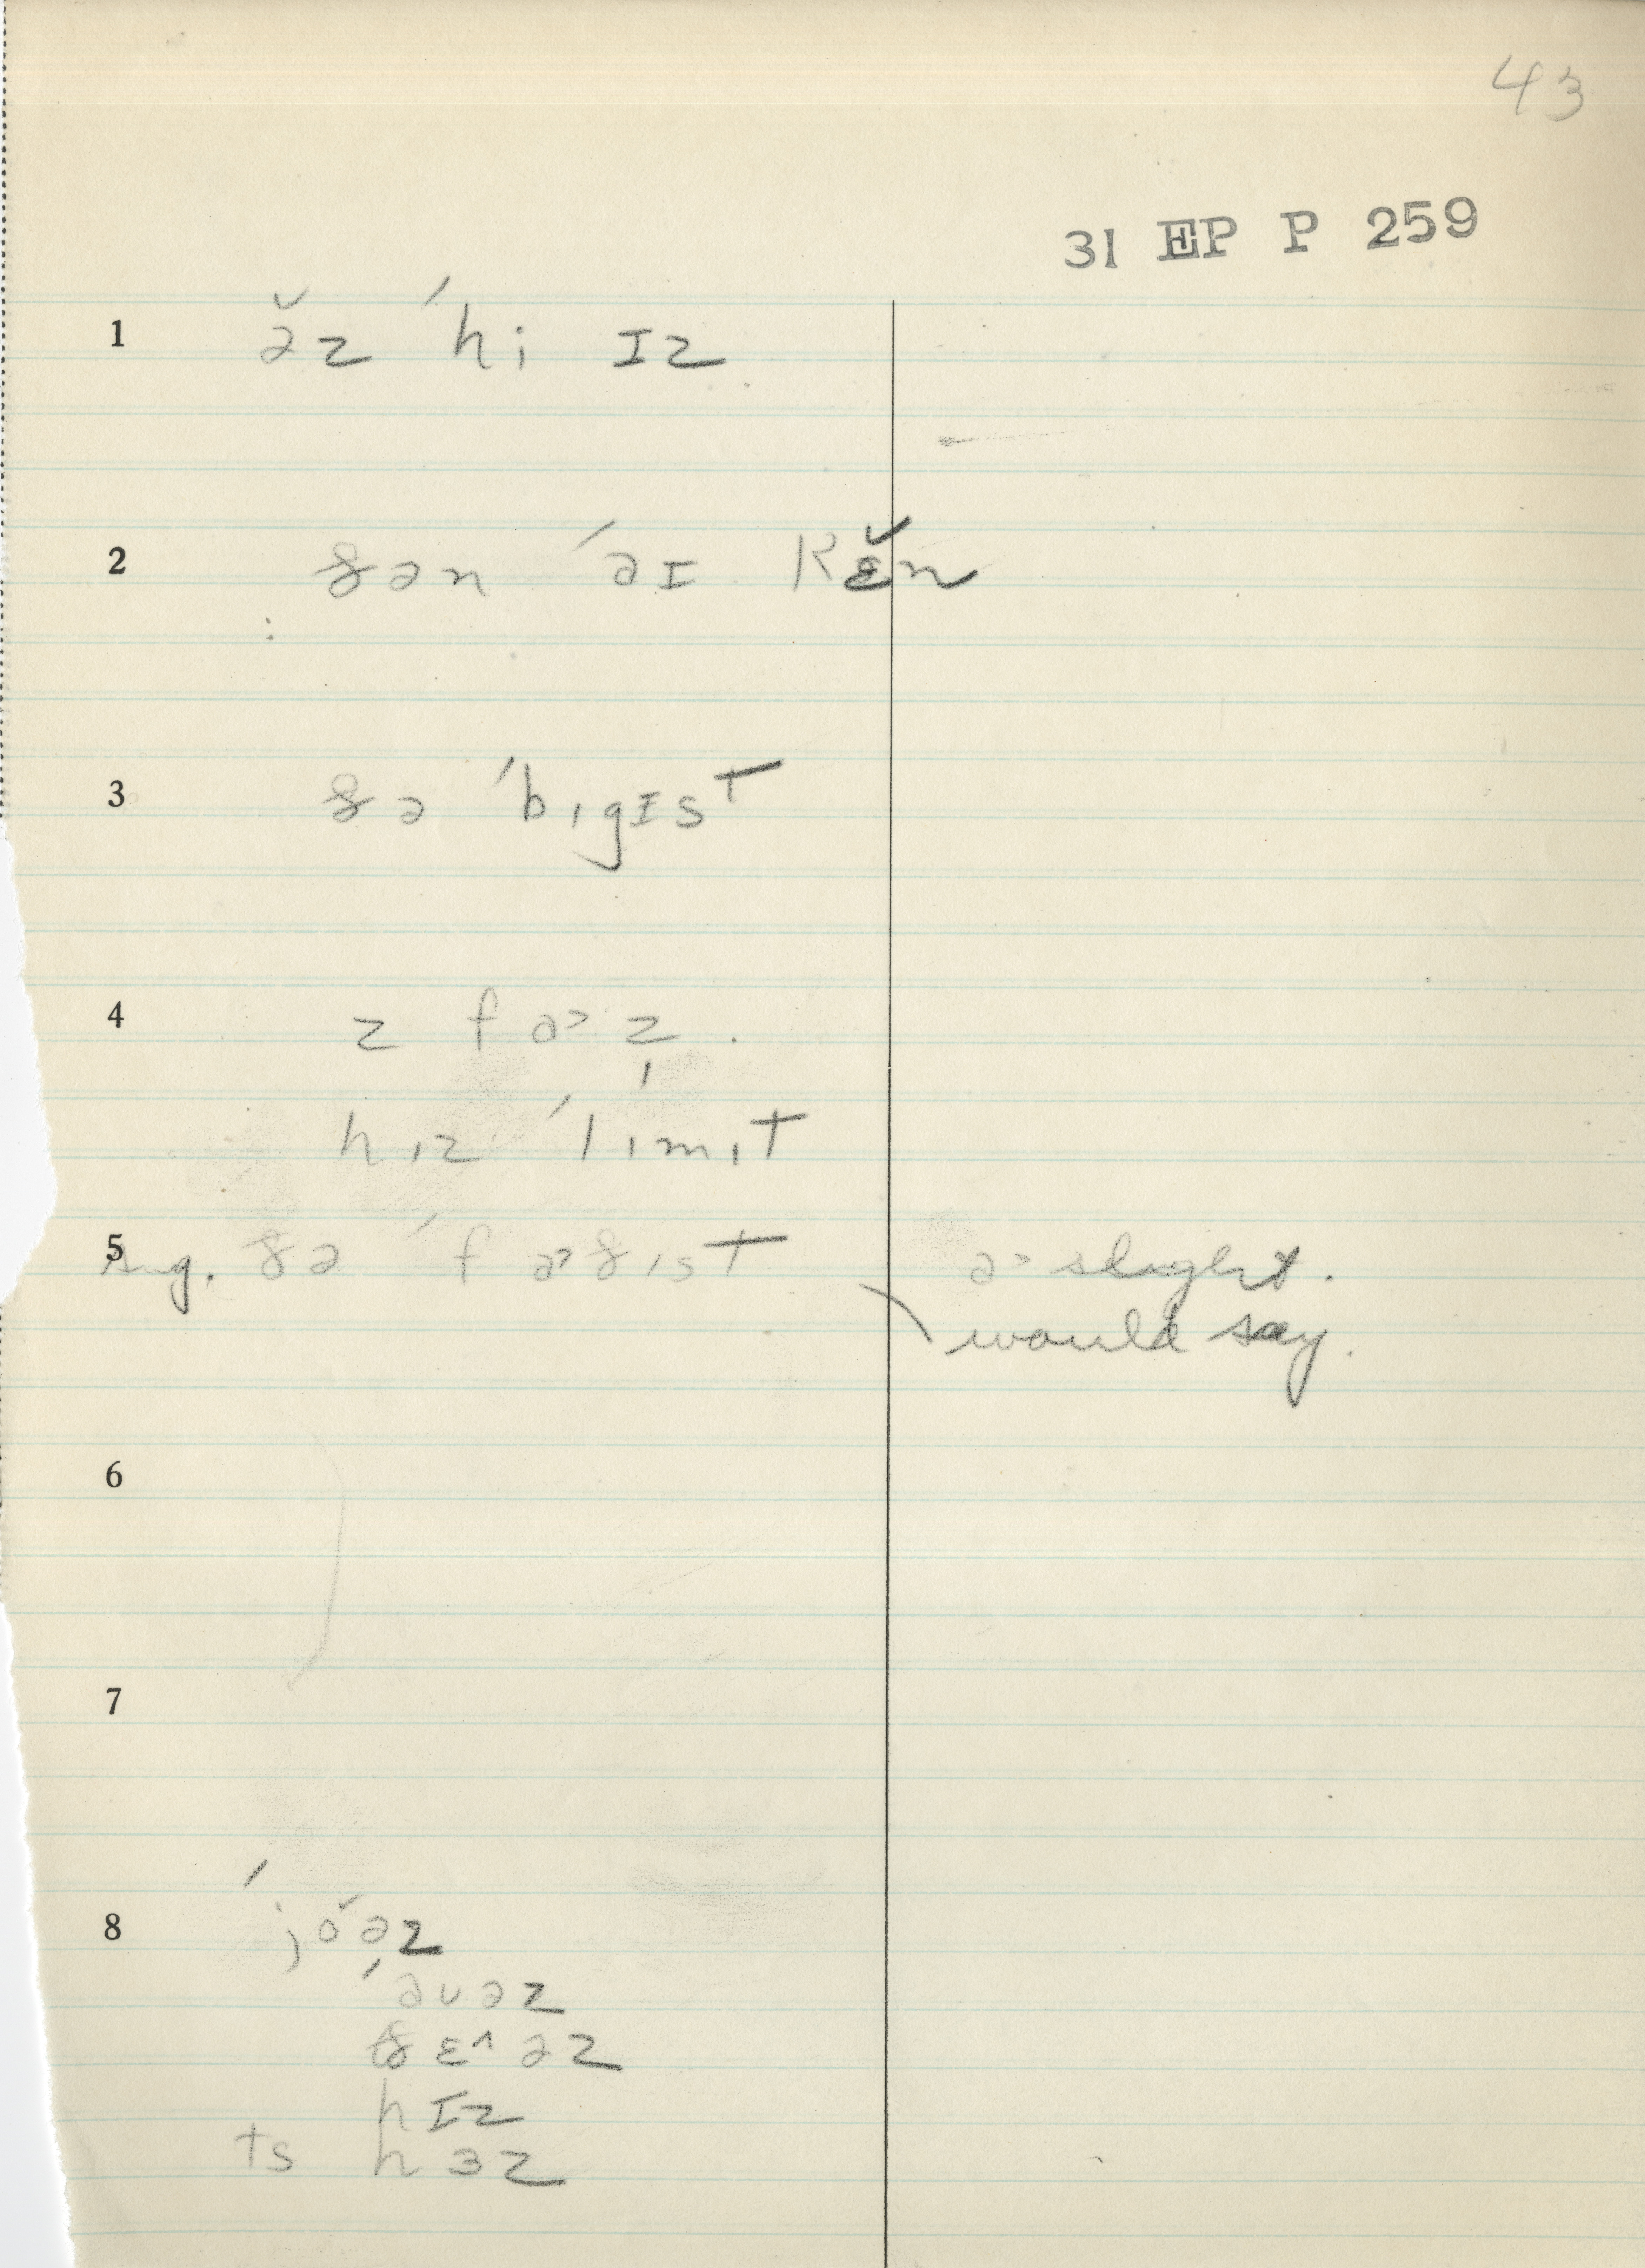 43
31 EP P 259
1 ə̆z ˈhi ɪz
2 ðən ˈəɪ kɛ̆n
3 ðə ˈbɪgɪst
4 z fə˃z̩.
hɪz ˈlɪmɪt
5 Sug. ðə ˈfə˃ðɪst ə˃ slight.
would say.
6
7
8 ˈjŏəz
ˈəʊəz
ðɛ^əz
hɪz
ts hɜz